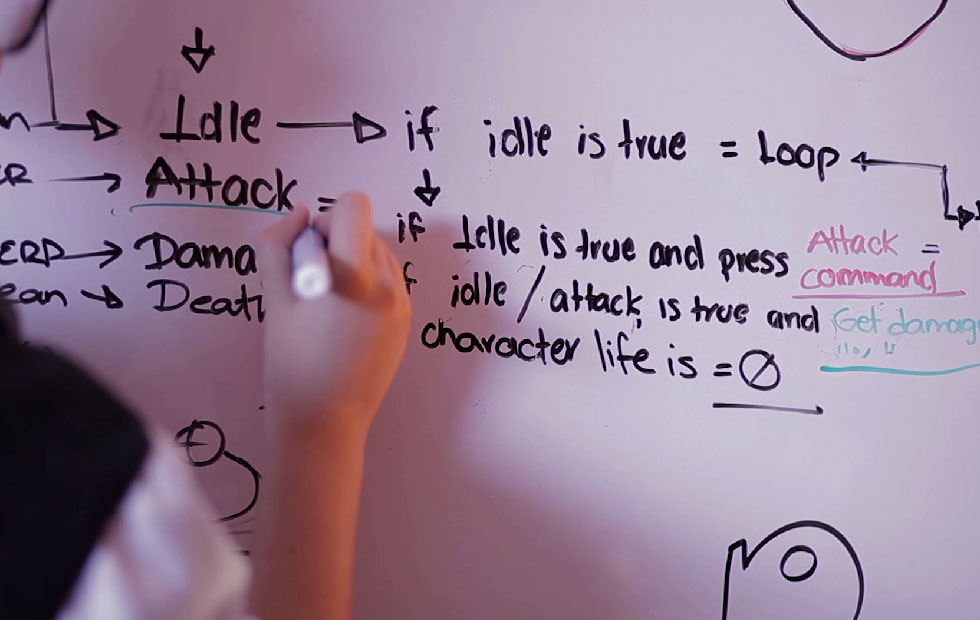 Idle if idle is true = Loop
Attack = if Idle is true and press Attack =
command
idle / attack, is true and Get damag
character life is = Ø